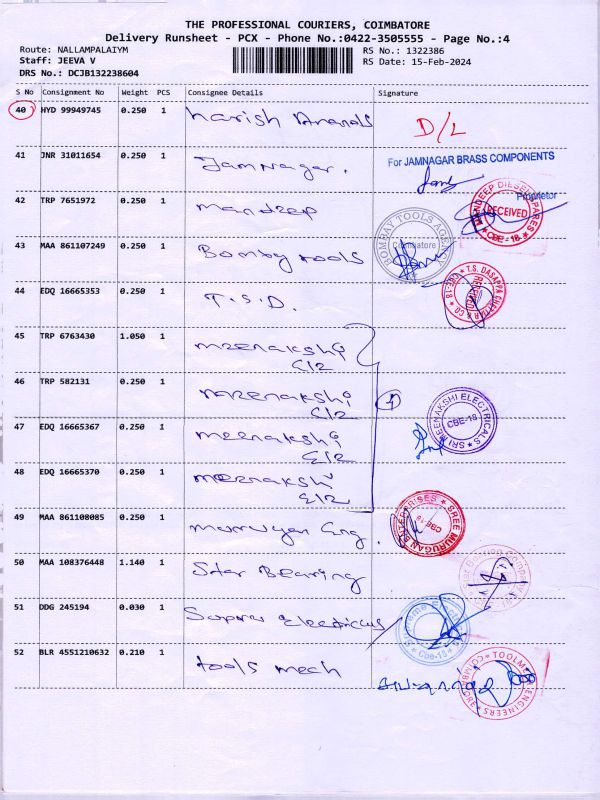 THE PROFESSIONAL COURIERS, COIMBATORE
Delivery Runsheet - PCX - Phone No.:0422-3505555 - Page No.:4
Route: NALLAMPALAIYM RS No.: 1322386
Staff: JEEVA V RS Date: 15-Feb-2024
DRS No.: DCJB132238604
S No Consignment No Weight PCS Consignee Details Signature
40 HYD 99949745 0.250 1 Harish D/L
41 JNR 31011654 0.250 1 Jamnagar. For JAMNAGAR BRASS COMPONENTS
Proprietor
42 TRP 7651972 0.250 1 mandeep MANDEEP DIESEL SPARES RECEIVED CBE-18
43 MAA 861107249 0.250 1 Bomby tools BOMBAY TOOLS AGENCY Coimbatore
44 EDQ 16665353 0.250 1 T.S.D. T.S. DASAPPA CHETTIAR & CO CBE-18 RECEIVED
45 TRP 6763430 1.050 1 meenakshi
E/2
46 TRP 582131 0.250 1 meenakshi
E/2
47 EDQ 16665367 0.250 1 meenakshi SRI MEENAKSHI ELECTRICALS CBE-18
E/2
48 EDQ 16665370 0.250 1 meenakshi
E/2
49 MAA 861108085 0.250 1 murugan Eng. SREE MURUGAN ENTERPRISES CBE-18
50 MAA 108376448 1.140 1 Star Bearing
51 DDG 245194 0.030 1 Supreme Electricals Cbe-18
52 BLR 4551210632 0.210 1 tools mech TOOLMECH ENGINEERS COIMBATORE